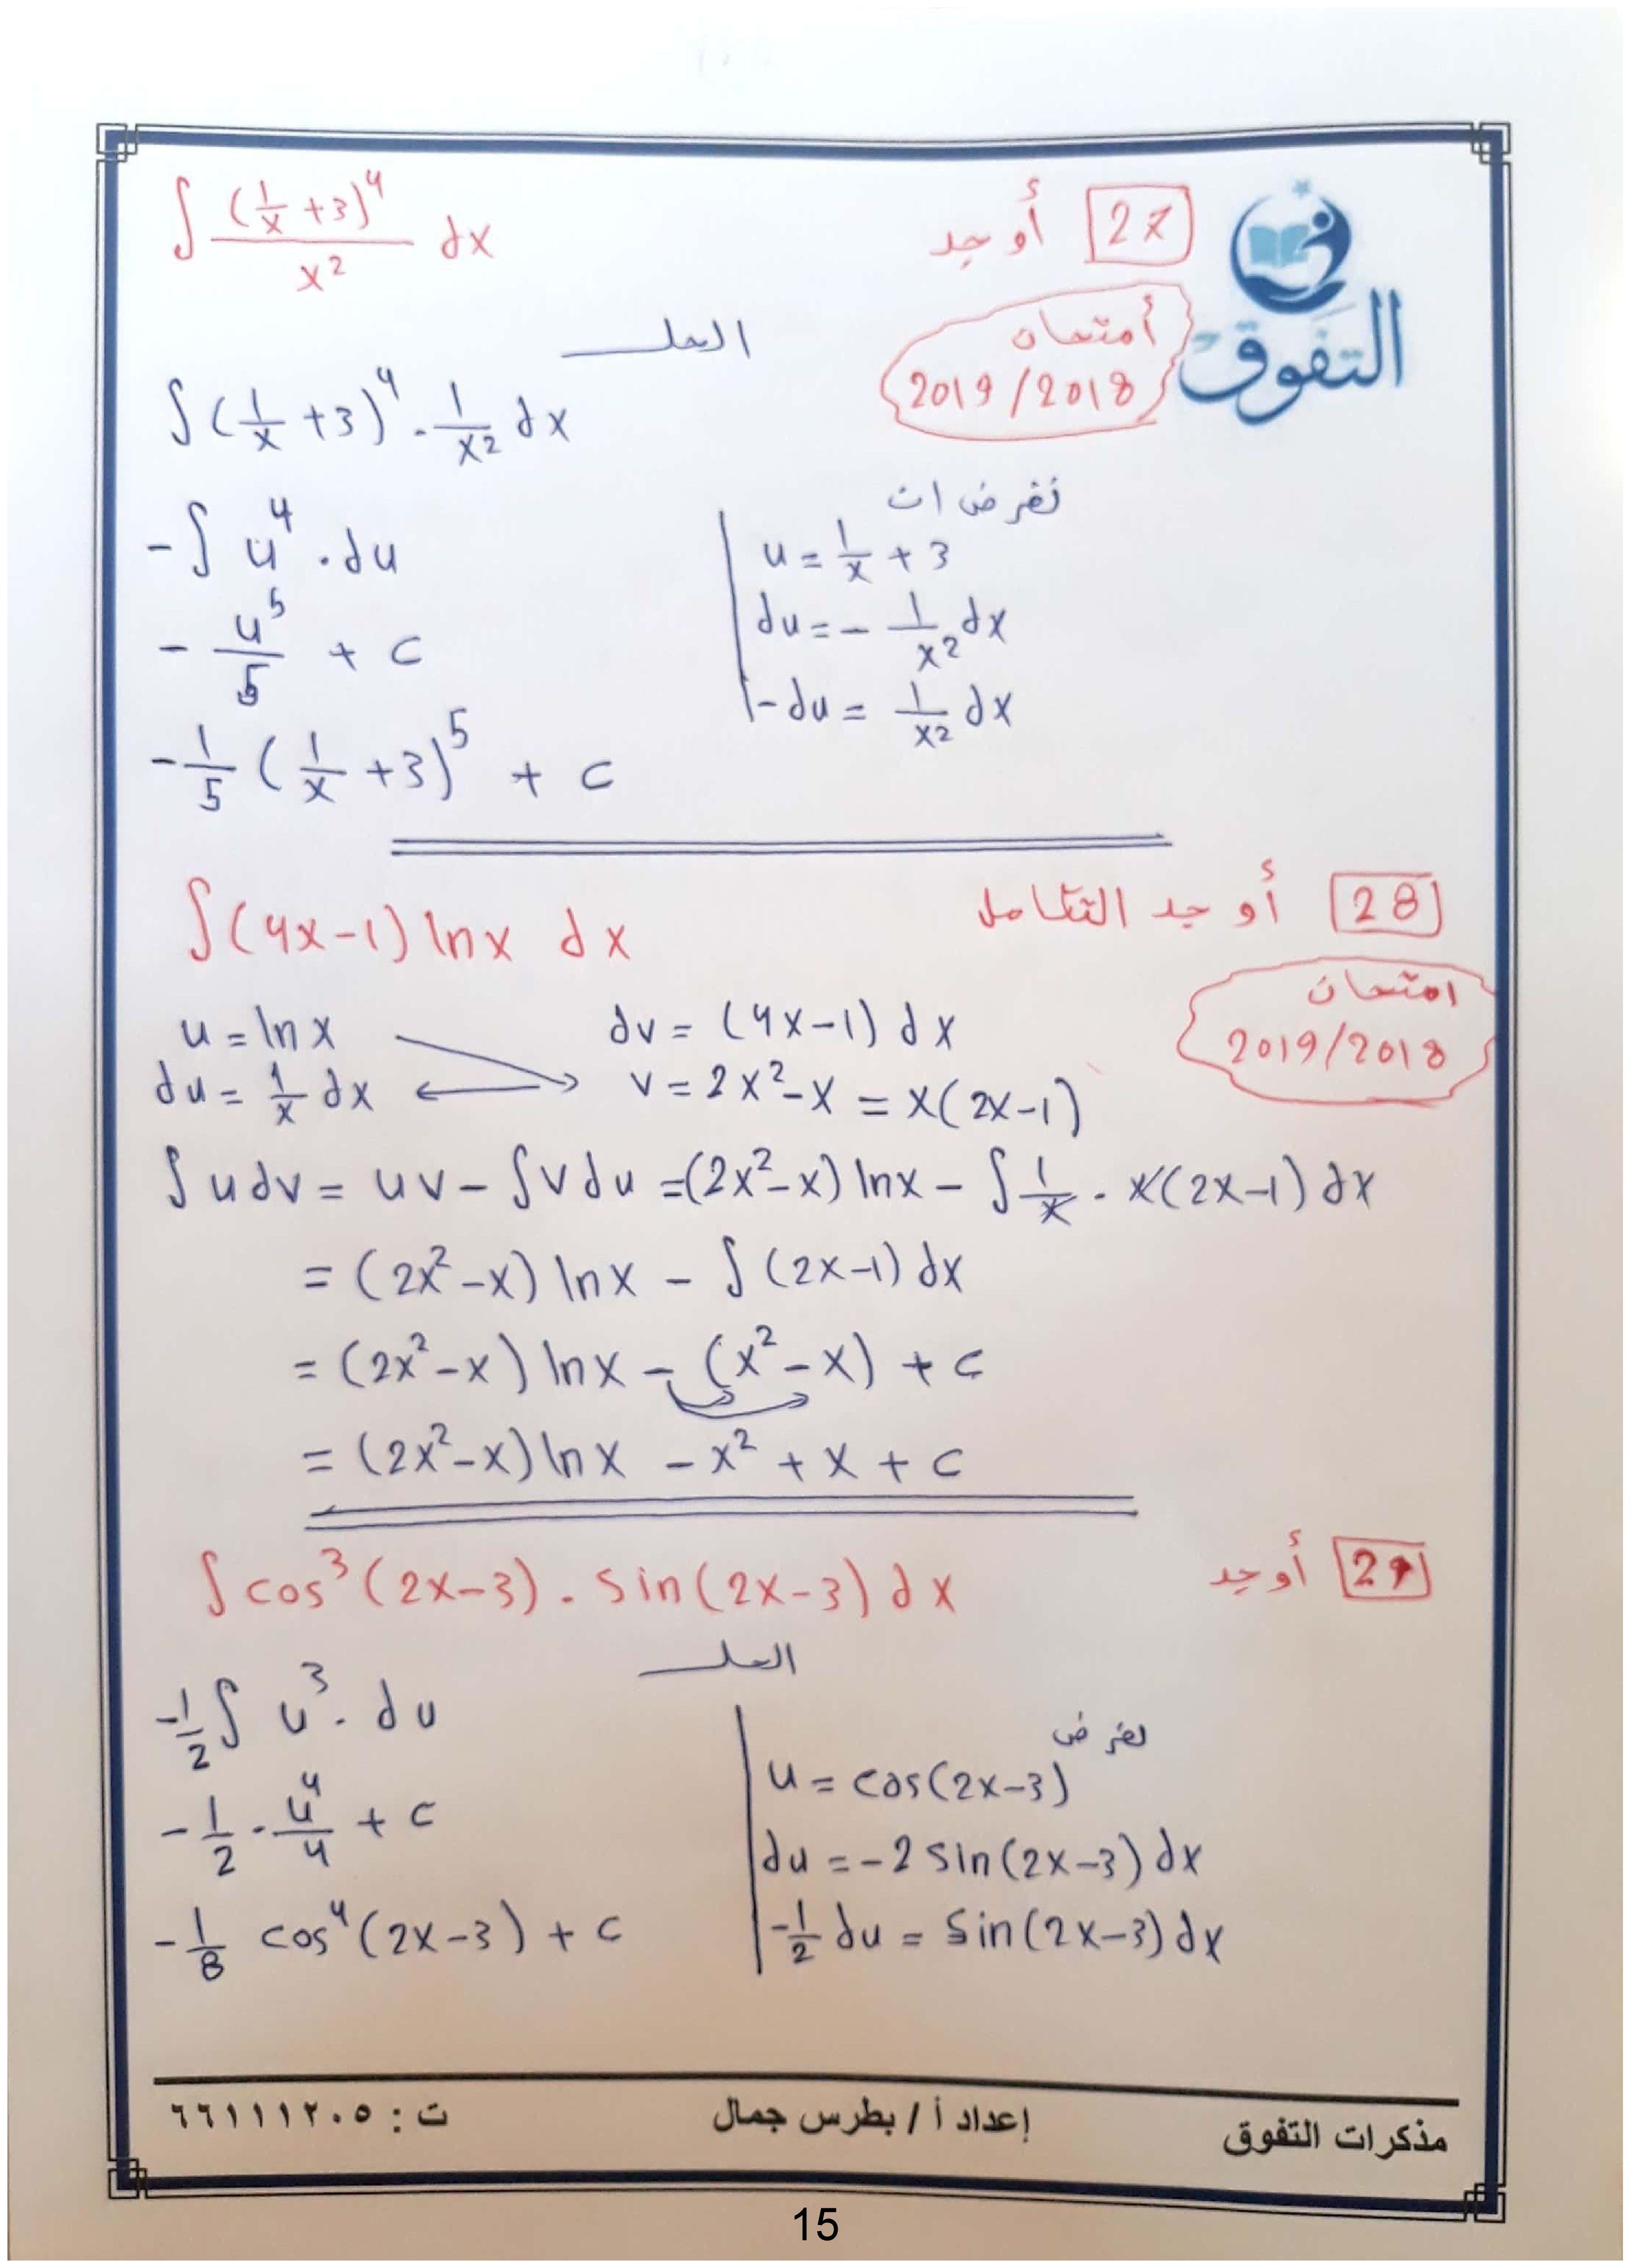 27 أوجد ∫ (1/x + 3)^4 / x^2 dx
التفوق
أمتحان
2019/2018
الحل
∫ (1/x + 3)^4 . 1/x^2 dx
نفرض ان
- ∫ u^4 . du
u = 1/x + 3
- u^5/5 + c
du = - 1/x^2 dx
- du = 1/x^2 dx
- 1/5 (1/x + 3)^5 + c
28 أوجد التكامل
∫ (4x-1) ln x dx
امتحان
2019/2018
u = ln x dv = (4x-1) dx
du = 1/x dx v = 2x^2 - x = x(2x-1)
∫ u dv = uv - ∫ v du = (2x^2 - x) ln x - ∫ 1/x . x(2x-1) dx
= (2x^2 - x) ln x - ∫ (2x-1) dx
= (2x^2 - x) ln x - (x^2 - x) + c
= (2x^2 - x) ln x - x^2 + x + c
29 أوجد
∫ cos^3 (2x-3) . sin(2x-3) dx
الحل
نفرض
- 1/2 ∫ u^3 . du
u = cos(2x-3)
- 1/2 . u^4/4 + c
du = -2 sin(2x-3) dx
- 1/8 cos^4 (2x-3) + c
- 1/2 du = sin(2x-3) dx
مذكرات التفوق إعداد أ / بطرس جمال ت : ٦٦١١١٢٠٥
15